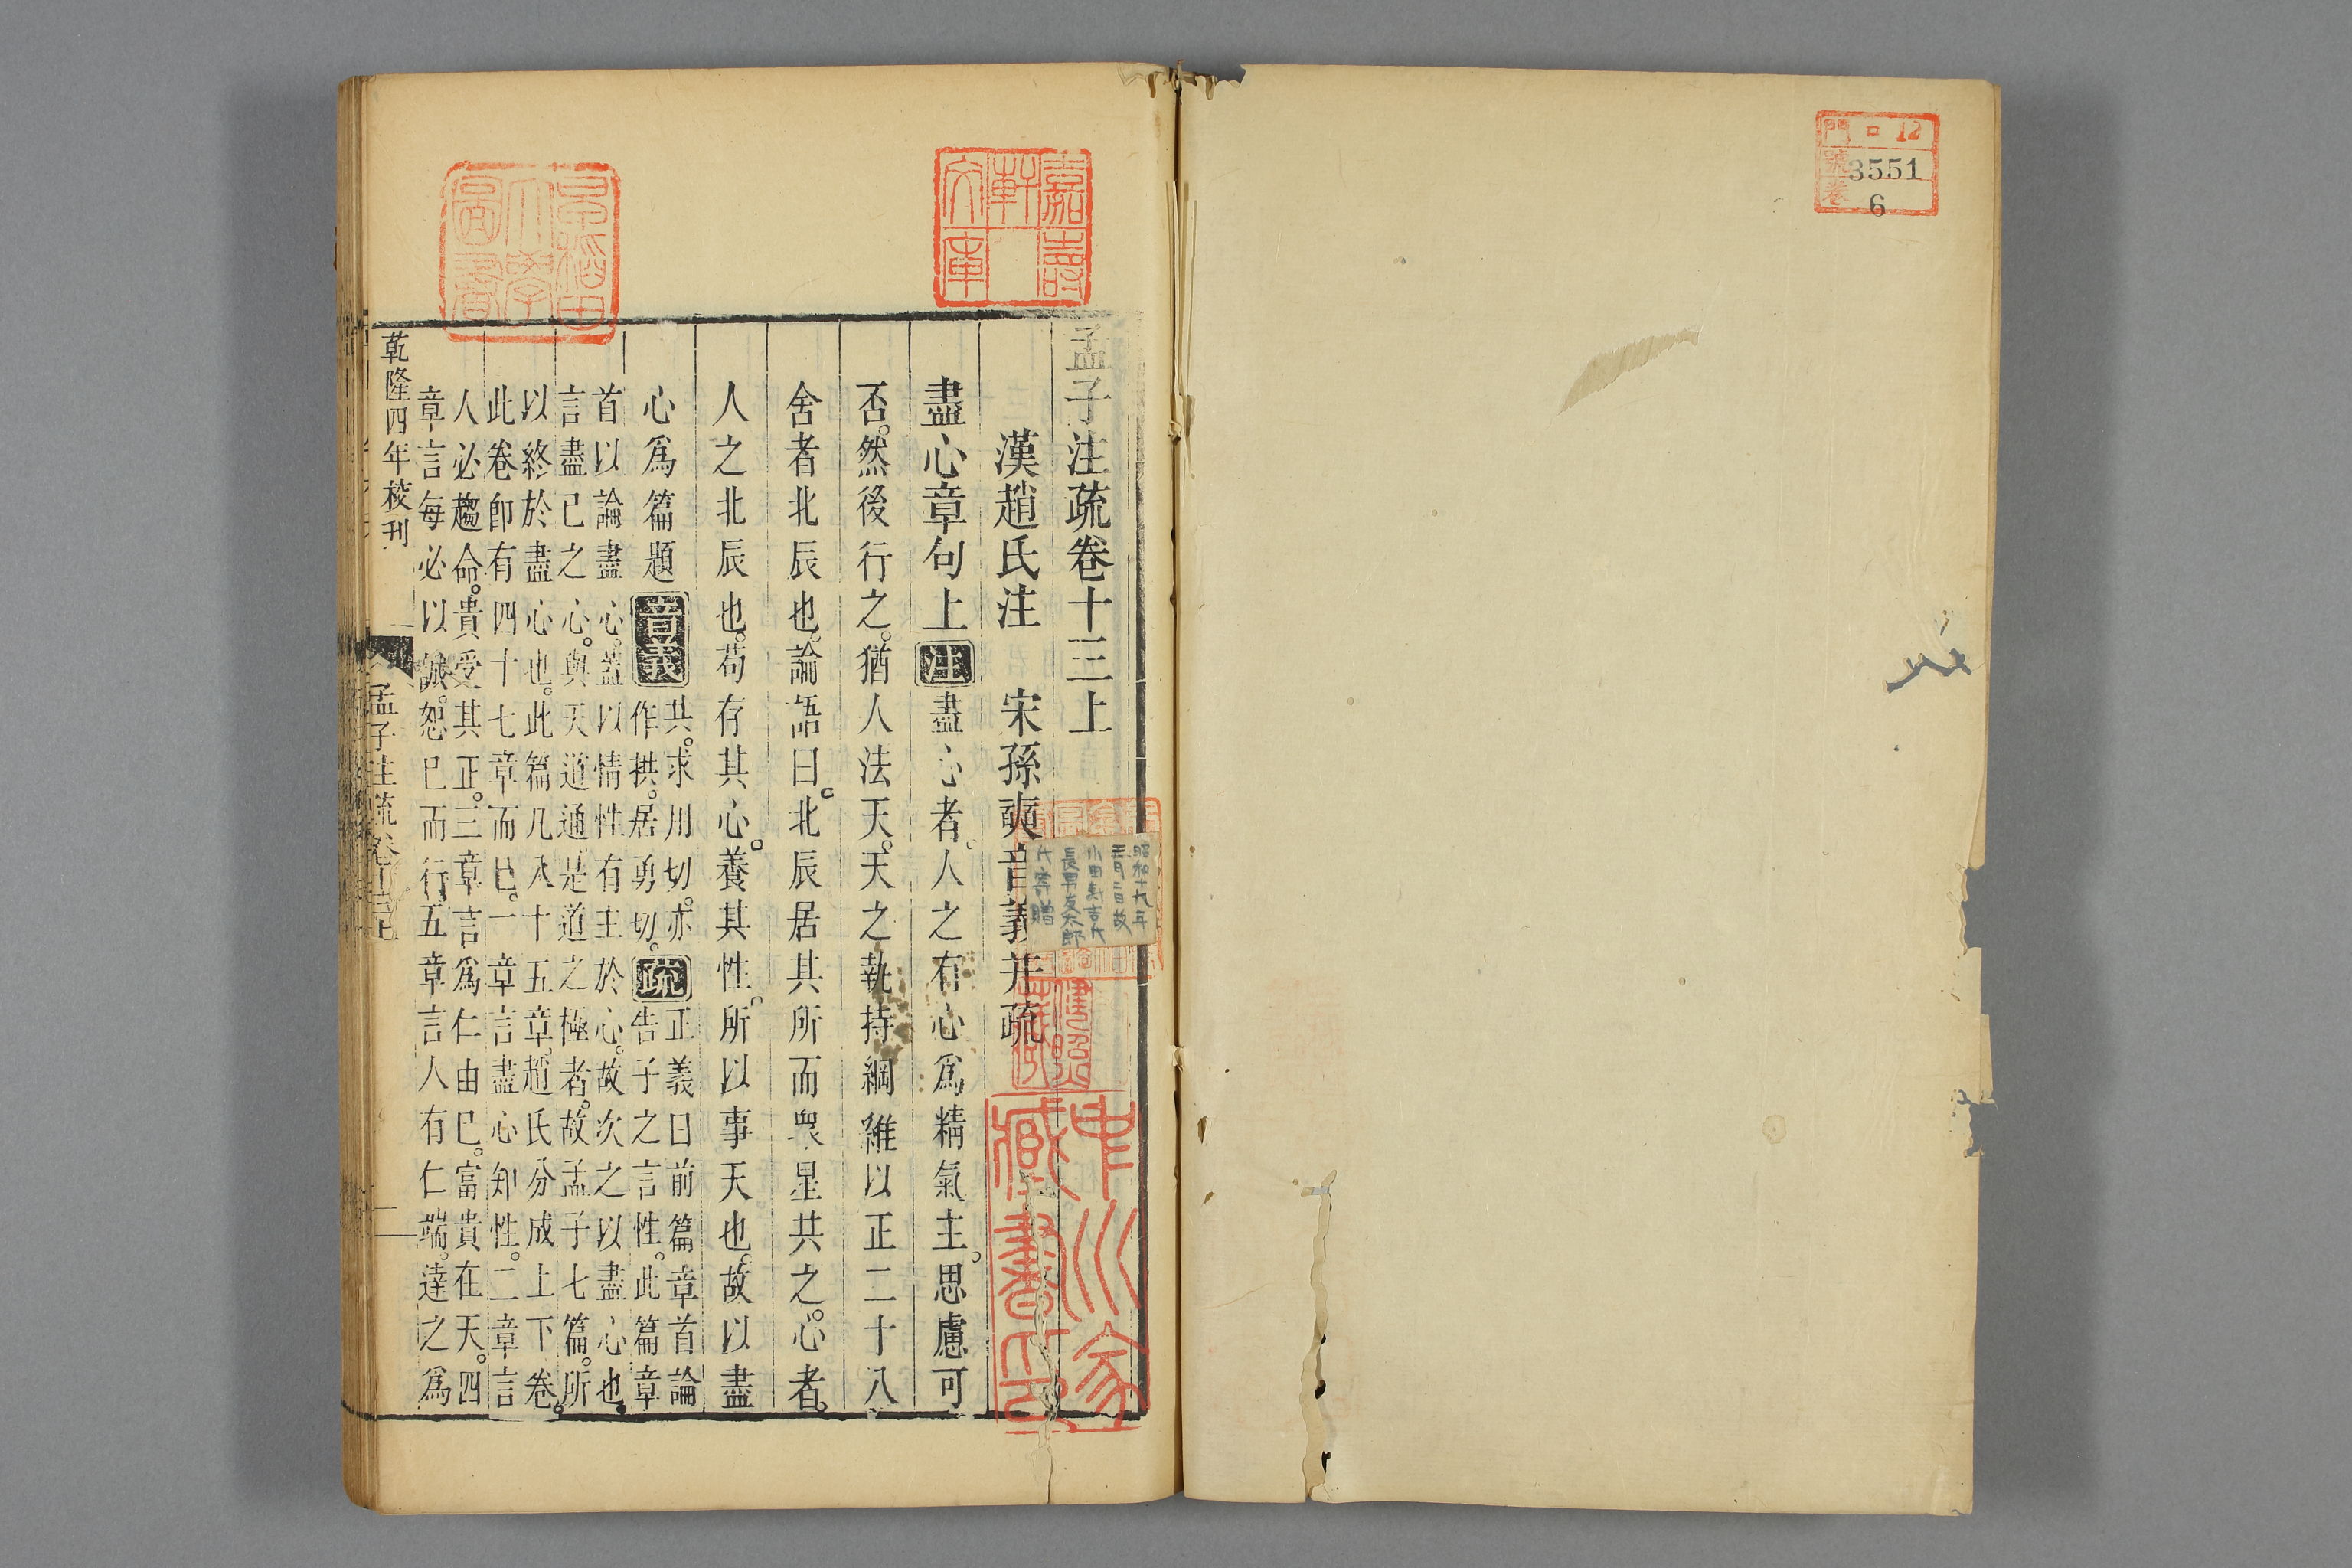 門 ロ 12
號 3551
卷 6
嘉壽軒文庫
早稲田大學圖書
孟子注疏卷十三上
漢趙氏注 宋孫奭音義并疏
盡心章句上 注 盡心者。人之有心爲精氣主。思慮可
否。然後行之。猶人法天。天之執持綱維以正二十八
舍者北辰也。論語曰。北辰居其所而衆星共之。心者。
人之北辰也。苟存其心。養其性。所以事天也。故以盡
心爲篇題 音義 共。求用切。亦
作拱。居勇切。 疏 正義曰前篇章首論
告子之言性。此篇章
首以論盡心。蓋以情性有主於心。故次之以盡心也。
言盡已之心。與天道通是道之極者。故孟子七篇。所
以終於盡心也。此篇凡八十五章。趙氏分成上下卷。
此卷卽有四十七章而已。一章言盡心知性。二章言
人必趨命。貴受其正。三章言爲仁由已。富貴在天。四
章言每必以誠。恕已而行。五章言人有仁端。達之爲
乾隆四年校刊
孟子注疏卷十三上
一
昭和十九年
五月二日故
小田
長男友太郎
氏寄贈
中川家
藏書印